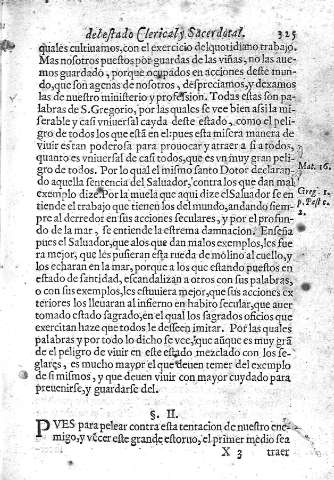 del estado Clerical y Sacerdotal. 325
quales cultiuamos, con el exercicio del quotidiano trabajo.
Mas nosotros puestos por guardas de las viñas, no las aue-
mos guardado, porque ocupados en acciones deste mun-
do, que son agenas de nosotros, despreciamos, y dexamos
las de nuestro ministerio y profesion. Todas estas son pa-
labras de S. Gregorio, por las quales se vee bien assi la mi-
serable y casi vniuersal cayda deste estado, como el peli-
gro de todos los que està en el: pues esta misera manera de
viuir es tan poderosa para prouocar y atraer a si a todos,
quanto es vniuersal de casi todos, que es vn muy gran peli-
gro de todos. Por lo qual el mismo santo Dotor declaran-
do aquella sentencia del Saluador, contra los que dan mal
exemplo dize. Por la muela que aqui dize el Saluador se en-
tiende el trabajo que tienen los del mundo, andando siem-
pre al derredor en sus acciones seculares, y por el profun-
do de la mar, se entiende la estrema damnacion. Enseña
pues el Saluador, que a los que dan malos exemplos, les fue
ra mejor, que les pusieran esta rueda de molino al cuello, y
los echaran en la mar, porque a los que estando puestos en
estado de santidad, escandalizan a otros con sus palabras,
o con sus exemplos, les estuuiera mejor, que sus acciones ex
teriores los lleuaran al infierno en habito secular, que auer
tomado estado sagrado, en el qual los sagrados oficios que
exercitan haze que todos le desseen imitar. Por las quales
palabras y por todo lo dicho se vee, que aũque es muy grã
de el peligro de viuir en este estado mezclado con los se-
glares, es mucho mayor el que deuen temer del exemplo
de si mismos, y que deuen viuir con mayor cuydado para
preuenirse, y guardarse del.
Mat. 16.
Greg. 1.
p. Past. c.
2.
§. II.
PVES para pelear contra esta tentacion de nuestro ene-
migo, y vẽcer este grande estoruo, el primer medio sea
X 3 traer